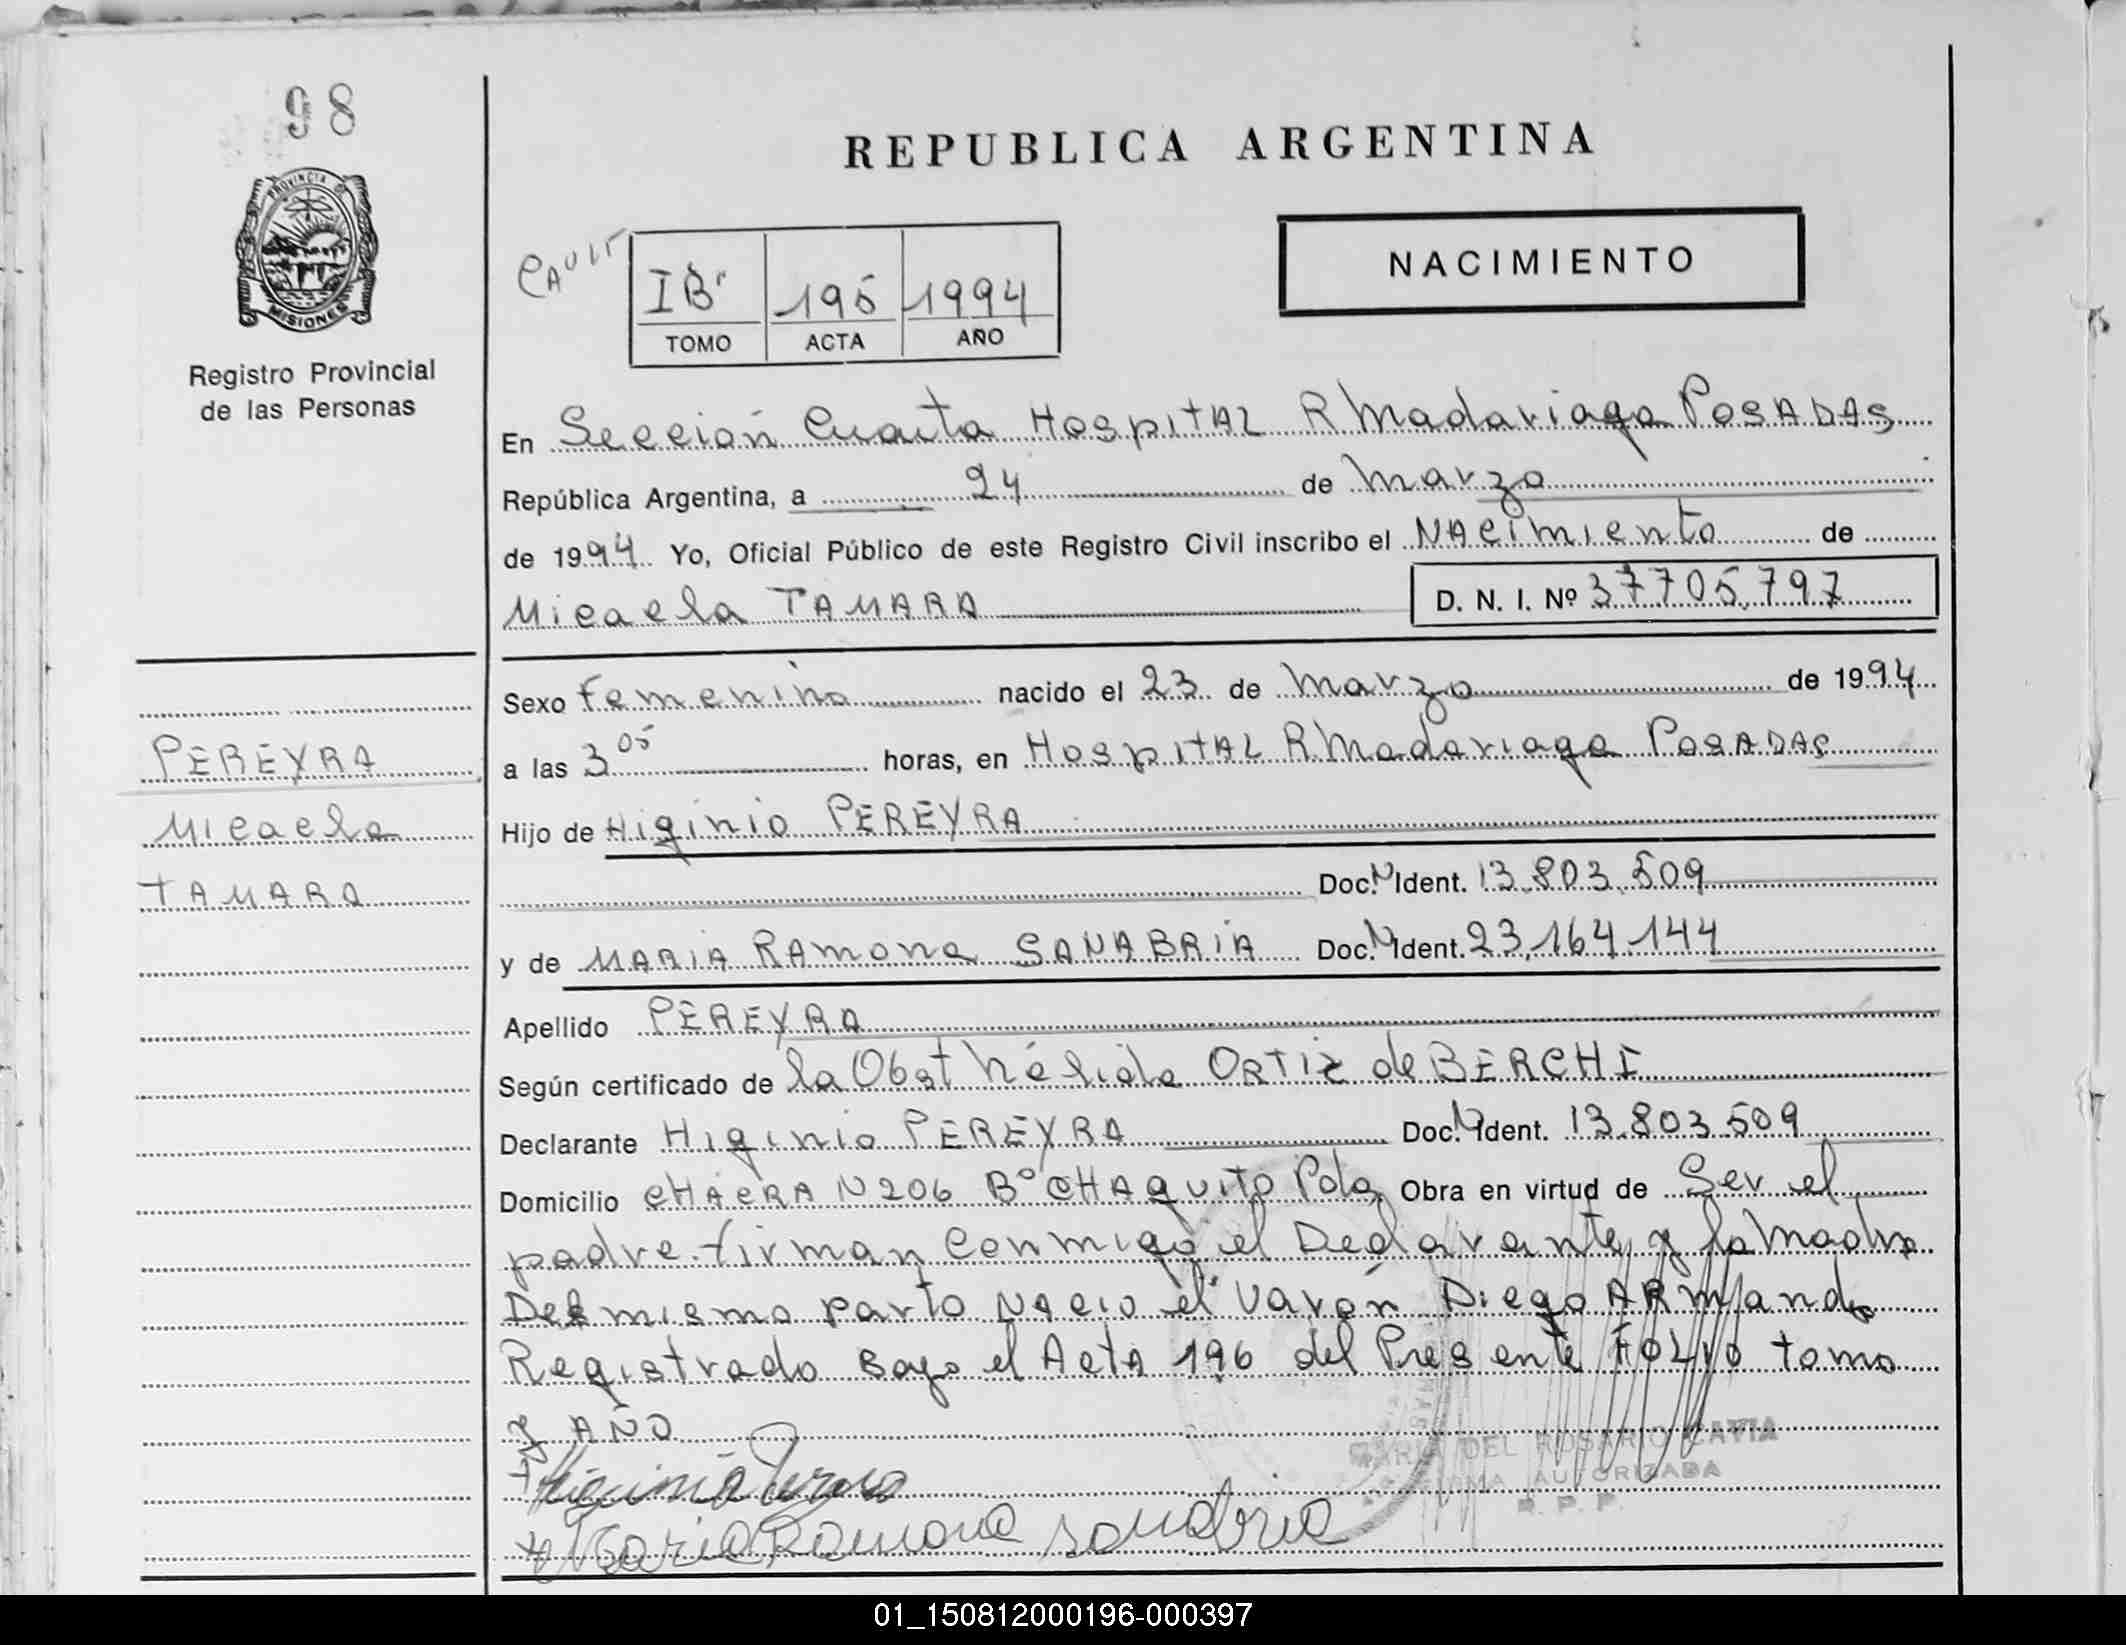 98
PROVINCIA DE
MISIONES
Registro Provincial
de las Personas
REPUBLICA ARGENTINA
NACIMIENTO
IBˢ 195 1994
TOMO ACTA AÑO
En Sección Cuarta Hospital R Madariaga POSADAS
República Argentina, a 24 de Marzo
de 1994 Yo, Oficial Público de este Registro Civil inscribo el NAcimiento de
Micaela TAMARA D. N. I. Nº 37705,797
Sexo Femenino nacido el 23 de Marzo de 1994
a las 3 05 horas, en HospitAL R Madariaga POSADAS
Hijo de Higinio PEREYRA
Doc. N Ident. 13.803.509
y de MARIA RAmona SANABRIA Doc. N Ident. 23,164.144
Apellido PEREYRA
Según certificado de la Obst Nélida ORTIZ de BERCHI
Declarante Higinio PEREYRA Doc. N Ident. 13.803.509
Domicilio CHACRA N 206 Bº CHAQUITO Pdas Obra en virtud de Ser el
padre. firman Conmigo el Declarante y la Madre
Del mismo parto NAcio el Varón Diego ARMando
Registrado Bajo el ActA 196 del Presente FOLIO tomo
y AÑO
Higinio Pereyra
Maria Ramona Sanabria
MARIA DEL ROSARIO CAVIA
FIRMA AUTORIZADA
R. P. P.
PEREYRA
Micaela
TAMARA
01_150812000196-000397